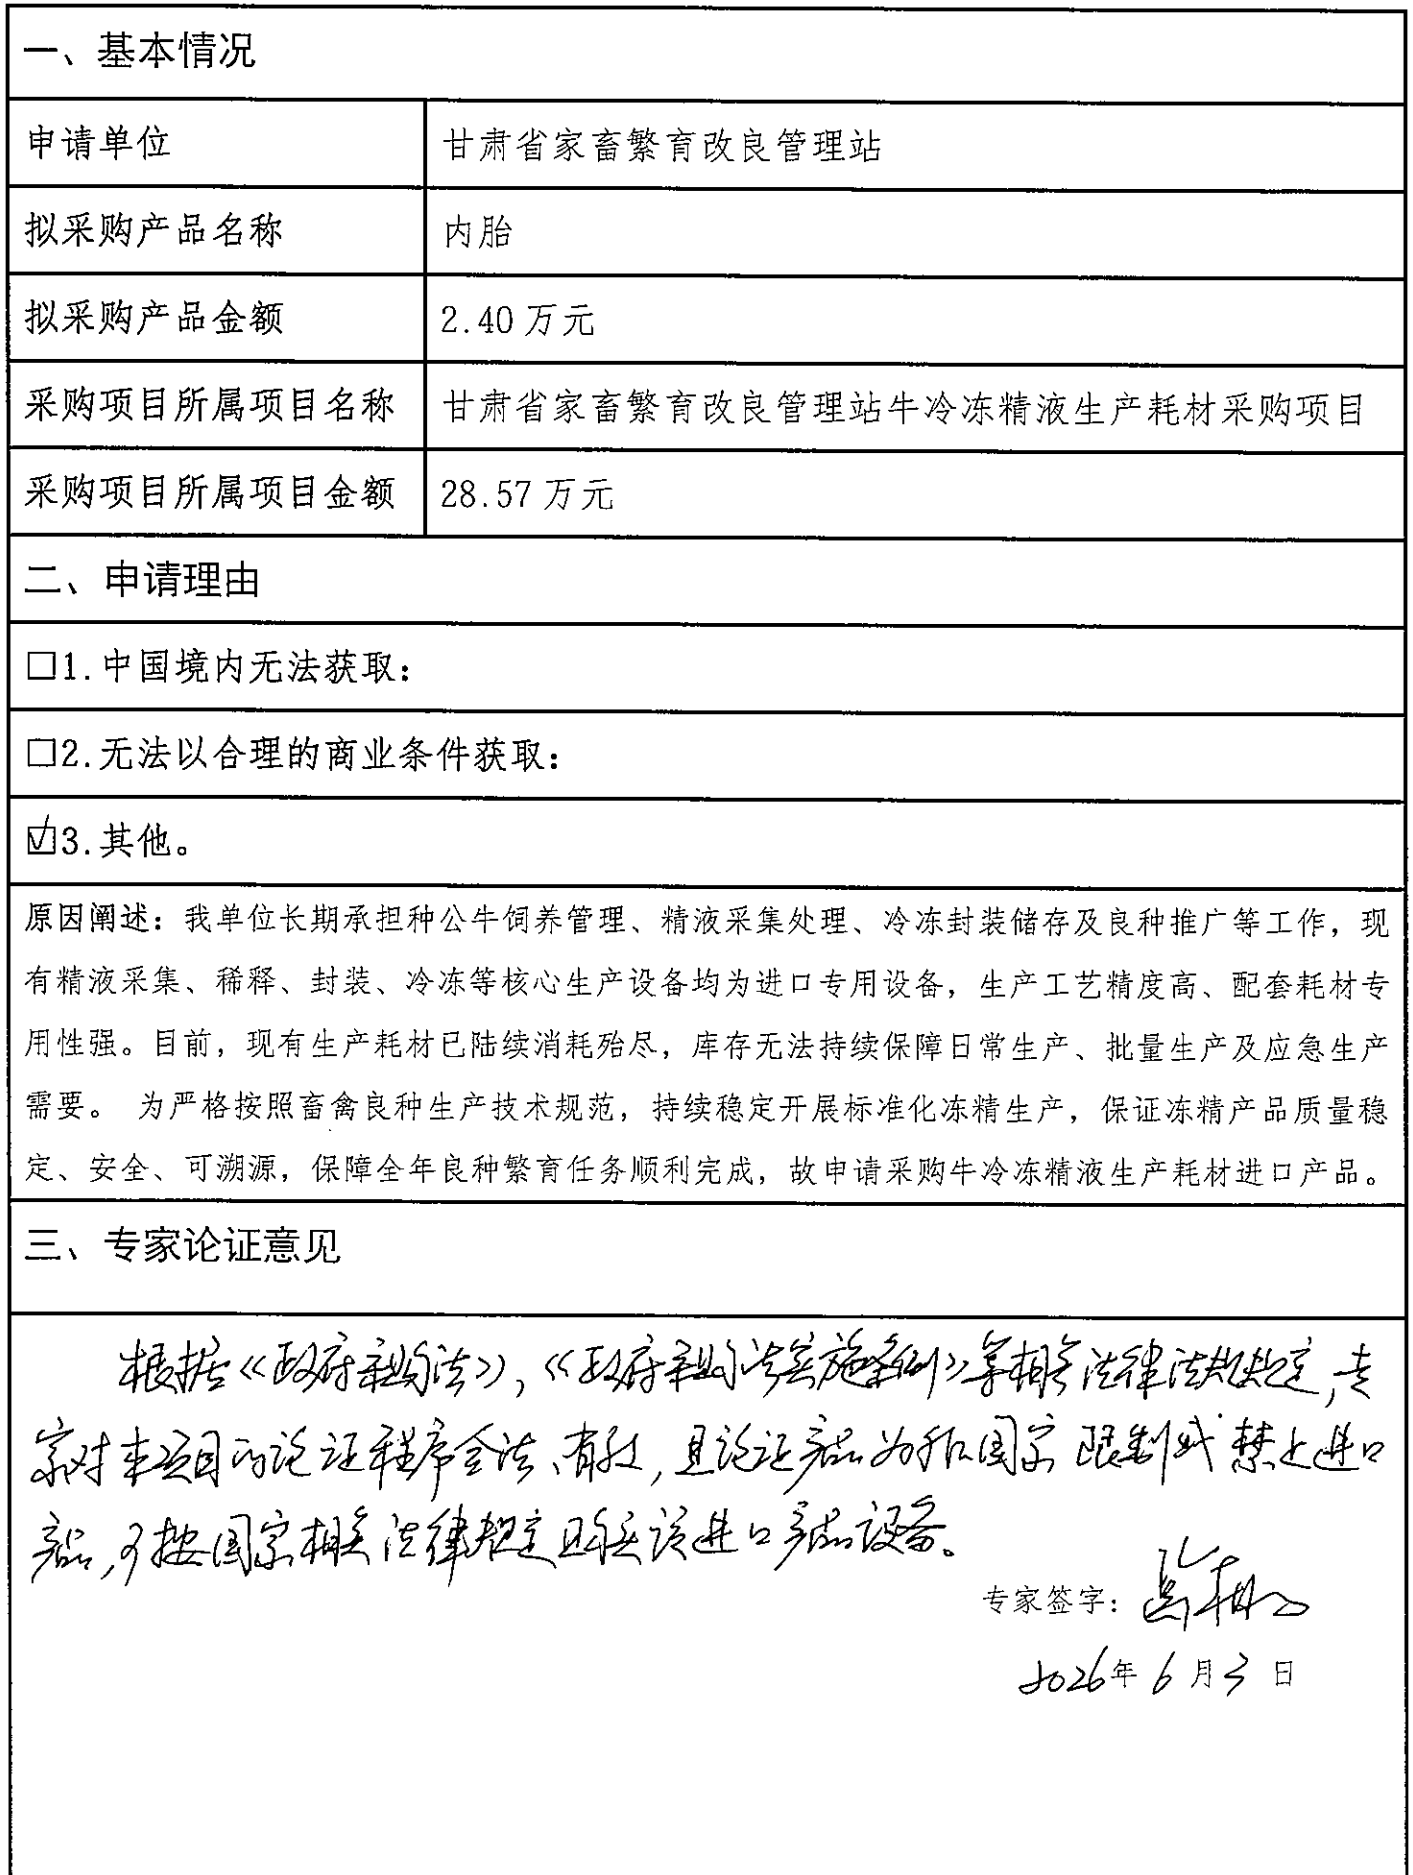 一、基本情况
申请单位 甘肃省家畜繁育改良管理站
拟采购产品名称 内胎
拟采购产品金额 2.40万元
采购项目所属项目名称 甘肃省家畜繁育改良管理站牛冷冻精液生产耗材采购项目
采购项目所属项目金额 28.57万元
二、申请理由
□1.中国境内无法获取：
□2.无法以合理的商业条件获取：
☑3.其他。
原因阐述：我单位长期承担种公牛饲养管理、精液采集处理、冷冻封装储存及良种推广等工作，现
有精液采集、稀释、封装、冷冻等核心生产设备均为进口专用设备，生产工艺精度高、配套耗材专
用性强。目前，现有生产耗材已陆续消耗殆尽，库存无法持续保障日常生产、批量生产及应急生产
需要。 为严格按照畜禽良种生产技术规范，持续稳定开展标准化冻精生产，保证冻精产品质量稳
定、安全、可溯源，保障全年良种繁育任务顺利完成，故申请采购牛冷冻精液生产耗材进口产品。
三、专家论证意见
根据《政府采购法》，《政府采购法实施条例》等相关法律法规规定，专
家对本项目的论证程序合法、有效，且论证产品为非国家限制或禁止进口
产品，可按国家相关法律规定购买该进口产品设备。
专家签字：
2026年6月3日